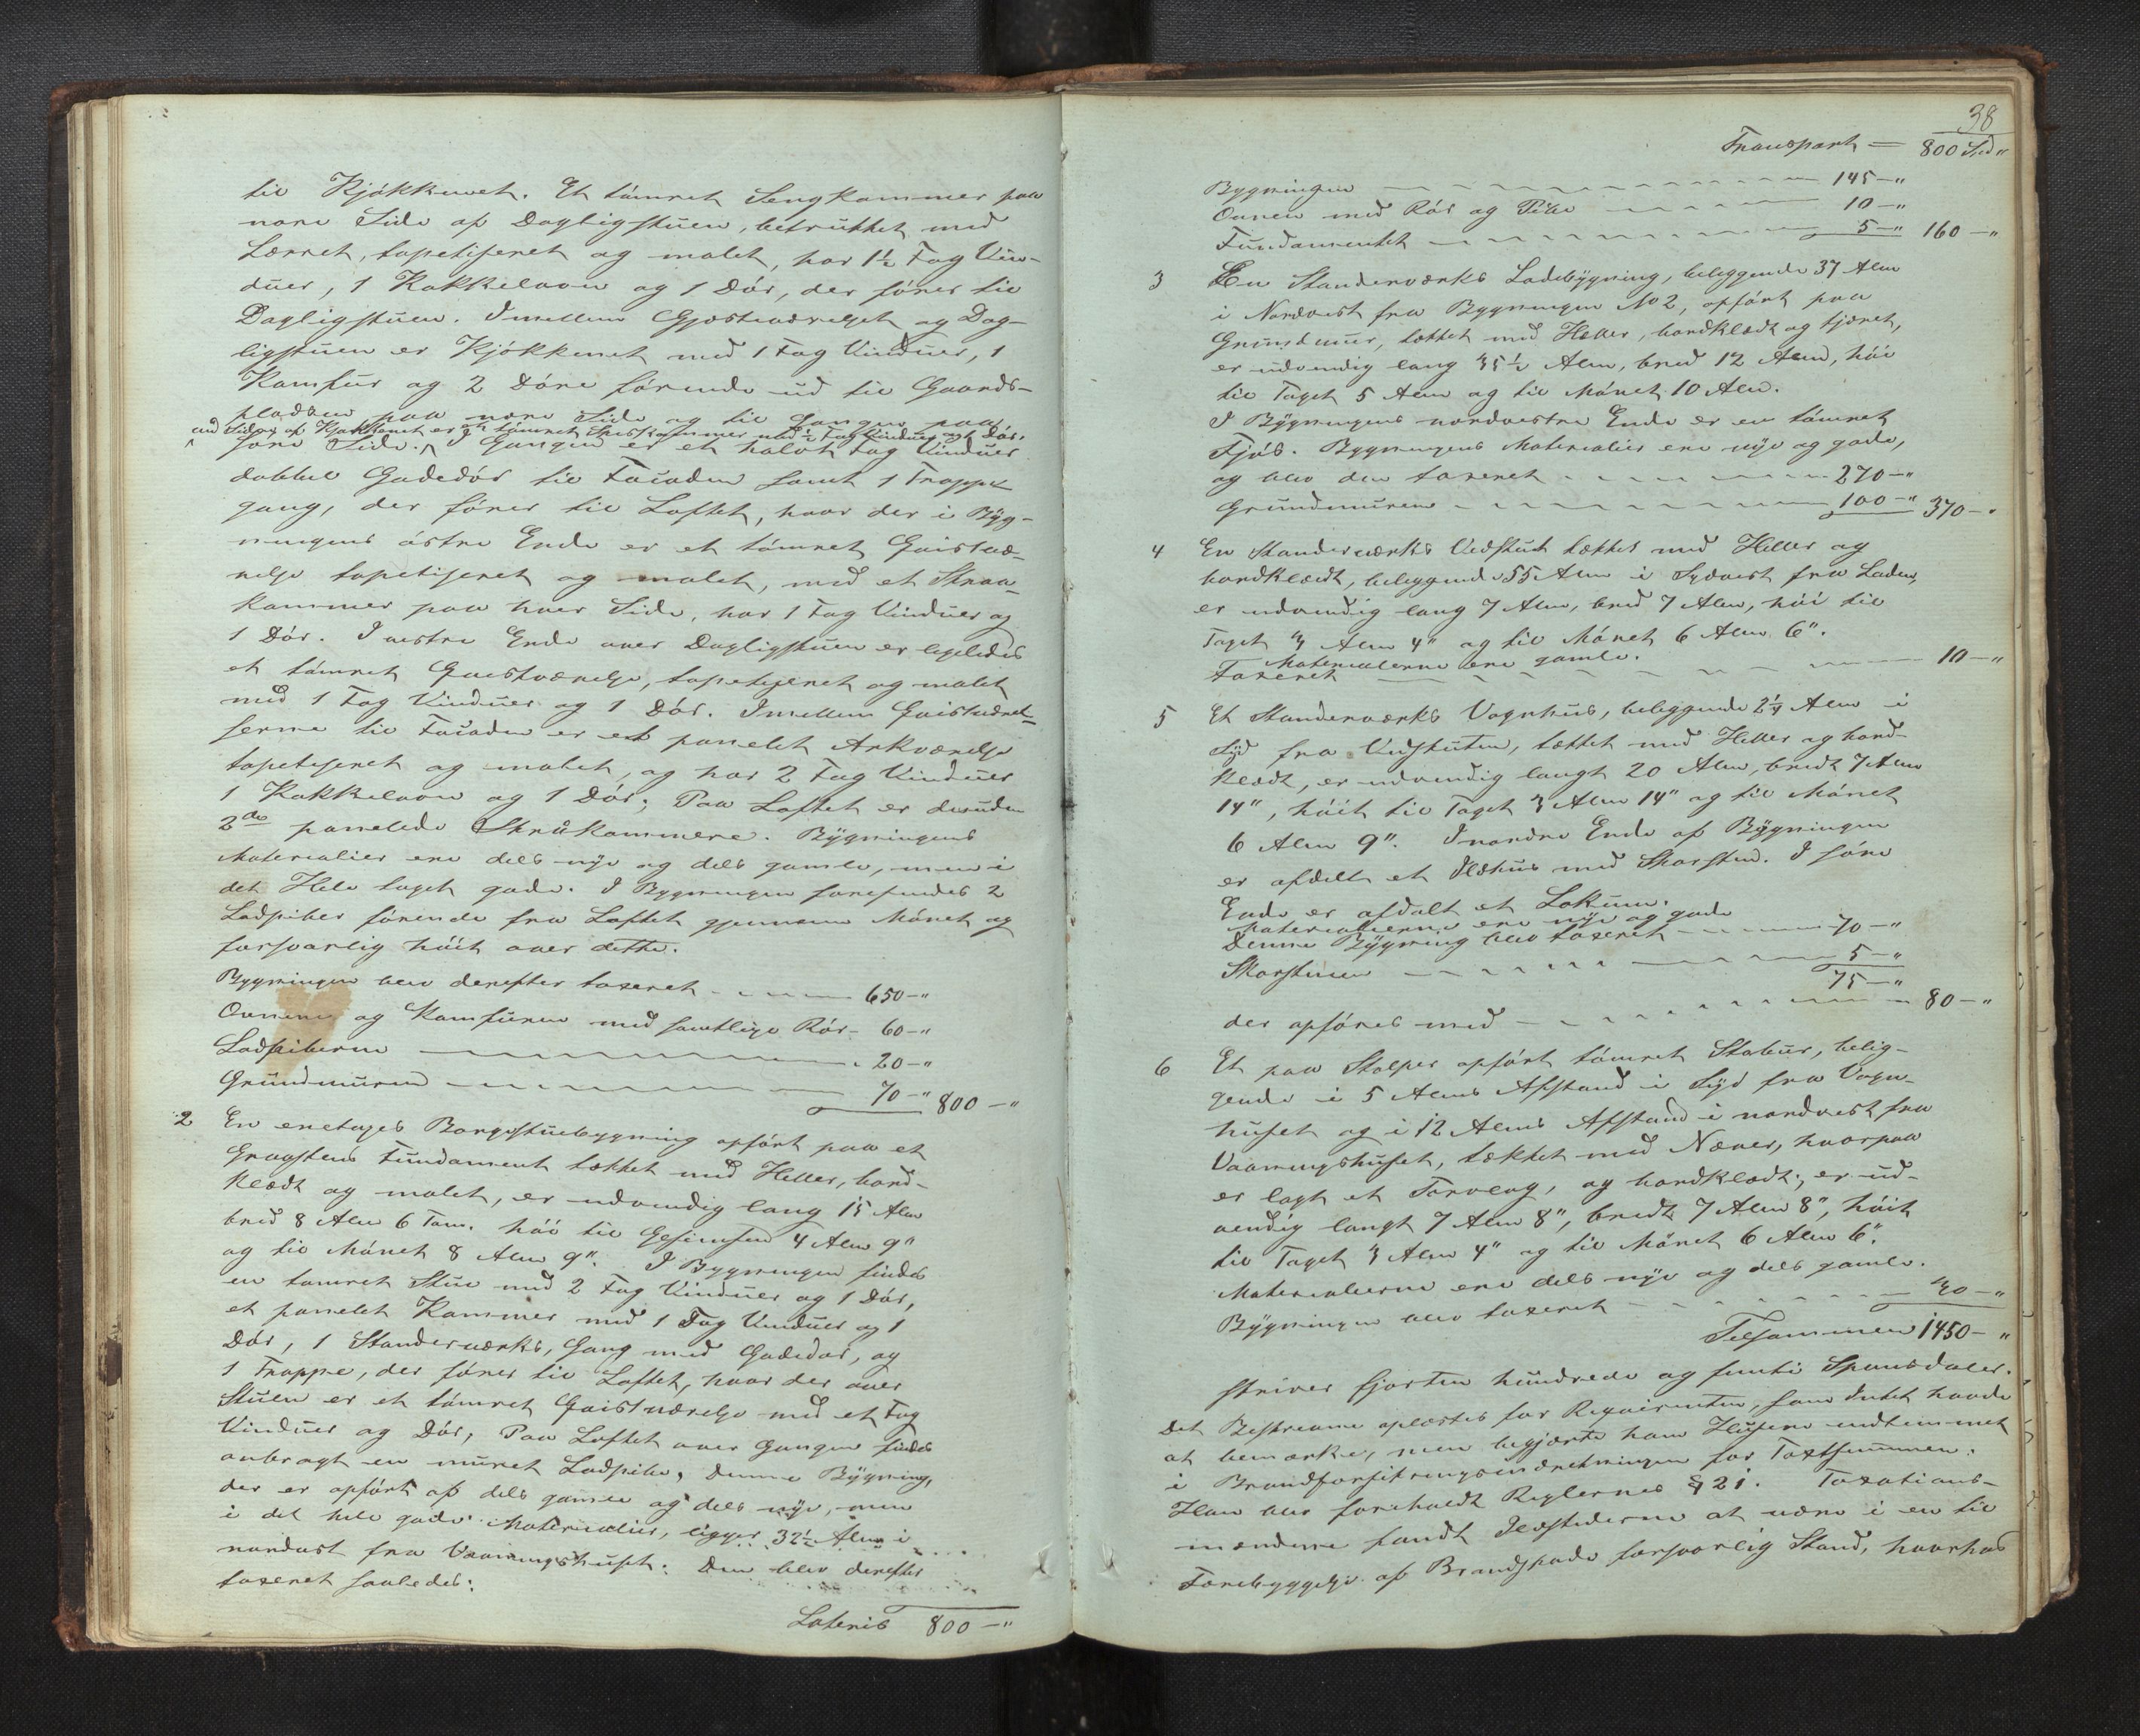 til Kjøkkenet. Et tømret Sengkammer paa
nore Side af Dagligstuen, betrukket med
Lærret, tapetiseret og malet, har 1½ Fag Vin-
duer, 1 Kakkelovn og 1 Dör, der förer til
Dagligstuen. Imellem Gjæsteværelset og Dag-
ligstuen er Kjökkenet med 1 Fag Vinduer, 1
Komfur og 2 Döre förende ud til Gaards-
pladsen paa nore Side og til Gangen paa
ved Siden af Kjøkkenet er et tömret Spiskammer med ½ Fag Vinduer og 1 Dör.
söre Side. I Gangen er et halvt Fag Vinduer
dobbel Gadedör til Facaden samt 1 Trappe
gang, der förer til Loftet, hvor der i Byg-
ningens östre Ende er et tömret Gjæstevæ-
relse tapetiseret og malet, med et Skraa-
kammer paa hver Side, har 1 Fag Vinduer og
1 Dör. I vestre Ende over Dagligstuen er ligeledes
et tömret Gjæsteværelse, tapetiseret og malet
med 1 Fag Vinduer og 1 Dör. Imellem Gjæsteværel-
serne til Facaden er et panelet Arkværelse
tapetiseret og malet, og har 2 Fag Vinduer
1 Kakkelovn og 1 Dör; Paa Loftet er desuden
2de panelede Skråkammere. Bygningens
Materialier ere dels nye og dels gamle, men i
det Hele taget gode. I Bygningen forefindes 2
Ladpiber förende fra Loftet gjennem Mönet og
forsvarlig höit over dette.
Bygningen blev derefter taxeret - - - 650 - "
Ovnene og Komfuren med samtlige Rör - 60 - "
Ladpiberne - - - 20 - "
Grundmuren - - - 70 - " 800 - "
2 En enetages Borgestuebygning opfört paa et
Graastens Fundament tækket med Heller, bord-
klædt og malet, er udvendig lang 15 Alen
bred 8 Alen 6 Tom. höi til Gesimsen 4 Alen 9"
og til Mönet 8 Alen 9". I Bygningen findes
en tømret Stue med 2 Fag Vinduer og 1 Dör,
et panelet Kammer med 1 Fag Vinduer og 1
Dör, 1 Standerværks, Gang med Gadedør, og
1 Trappe, der förer til Loftet, hvor der over
Stuen er et tömret Gjæsteværelse med et Fag
Vinduer og Dör, Paa Loftet over Gangen findes
anbragt en muret Ladpibe, Denne Bygning,
der er opfört af dels gamle og dels nye, men
i det hele gode Materialier, ligger 32½ Alen i
nordost fra Vaaningshuset: Den blev derefter
taxeret saaledes:
Lateris 800 - "
38
Transport = 800 Spd "
Bygningen - - - 145 - "
Ovnen med Rör og Pibe - - - 10 - "
Fundamentet - - - 5 - " 160 - "
3 En Standerværks Ladebygning, beliggende 37 Alen
i Nordvest fra Bygningen No 2, opfört paa
Grundmuur, tækket med Heller, bordklædt og tjæret,
er udvendig lang 35½ Alen, bred 12 Alen, höi
til Taget 5 Alen og til Mönet 10 Alen.
I Bygningens nordvestre Ende er en tömret
Fjös. Bygningens Materialier ere nye og gode,
og blev den taxeret - - - 270 - "
Grundmuren - - - 100 - " 370 - "
4 En Standerværks Vedskut tækket med Heller og
bordklædt, beliggende 55 Alen i Sydvest fra Laden,
er udvendig lang 7 Alen, bred 7 Alen, höi til
Taget 3 Alen 4" og til Mönet 6 Alen 6".
Materialierne ere gamle.
Taxeret - - - 10 - "
5 Et Standerværks Vognhus, beliggende 2¼ Alen i
Syd fra Vedskuten, tækket med Heller og bord-
klædt, er udvendig langt 20 Alen, bredt 7 Alen
14", höit til Taget 3 Alen 14" og til Mönet
6 Alen 9". I nordre Ende af Bygningen
er afdelt et Ildhus med Skorsten. I söre
Ende er afdelt et Lokum.
Materialierne ere nye og gode
Denne Bygning blev taxeret - - - 70 - "
Skorstenen - - - 5 - "
75 - "
der opföres med - - - 80 - "
6 Et paa Stolper opfört tömret Stabur, belig-
gende i 5 Alens Afstand i Syd fra Vogn-
huset og i 12 Alens Afstand i nordvest fra
Vaaningshuset, tækket med Næver, hvorpaa
er lagt et Torvlag, og bordklædt; er ud-
vendig langt 7 Alen 8", bredt 7 Alen 8", höit
til Taget 3 Alen 4" og til Mönet 6 Alen 6".
Materialierne ere dels nye og dels gamle.
Bygningen blev taxeret - - - 30 - "
Tilsammen 1450 - "
skriver fjorten hundrede og femti Speciedaler.
Det Beskrevne oplæstes for Reqvirenten, som Intet havde
at bemærke, men begjærte ham Husene indlemmet
i Brandforsikringsindretningen for Taxtsummen.
Han blev foreholdt Reglernes § 21. Taxations-
mændene fandt Ildstederne at være i en til
Forebyggelse af Brandskade forsvarlig Stand, hvorhos